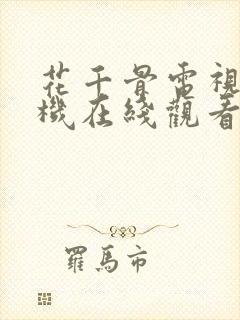 花千骨電視
機在綫觀看
羅馬市